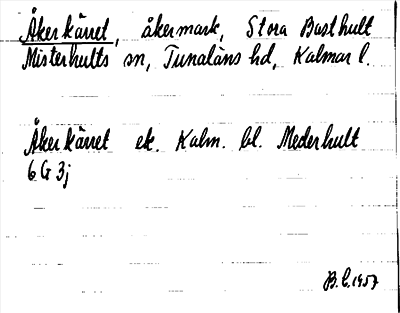 Åkerkärret, åkermark, Stora Basthult
Misterhults sn, Tunaläns hd, Kalmar l.
Åkerkärret ek. Kalm. bl. Mederhult
6 G 3j
B.C. 1957